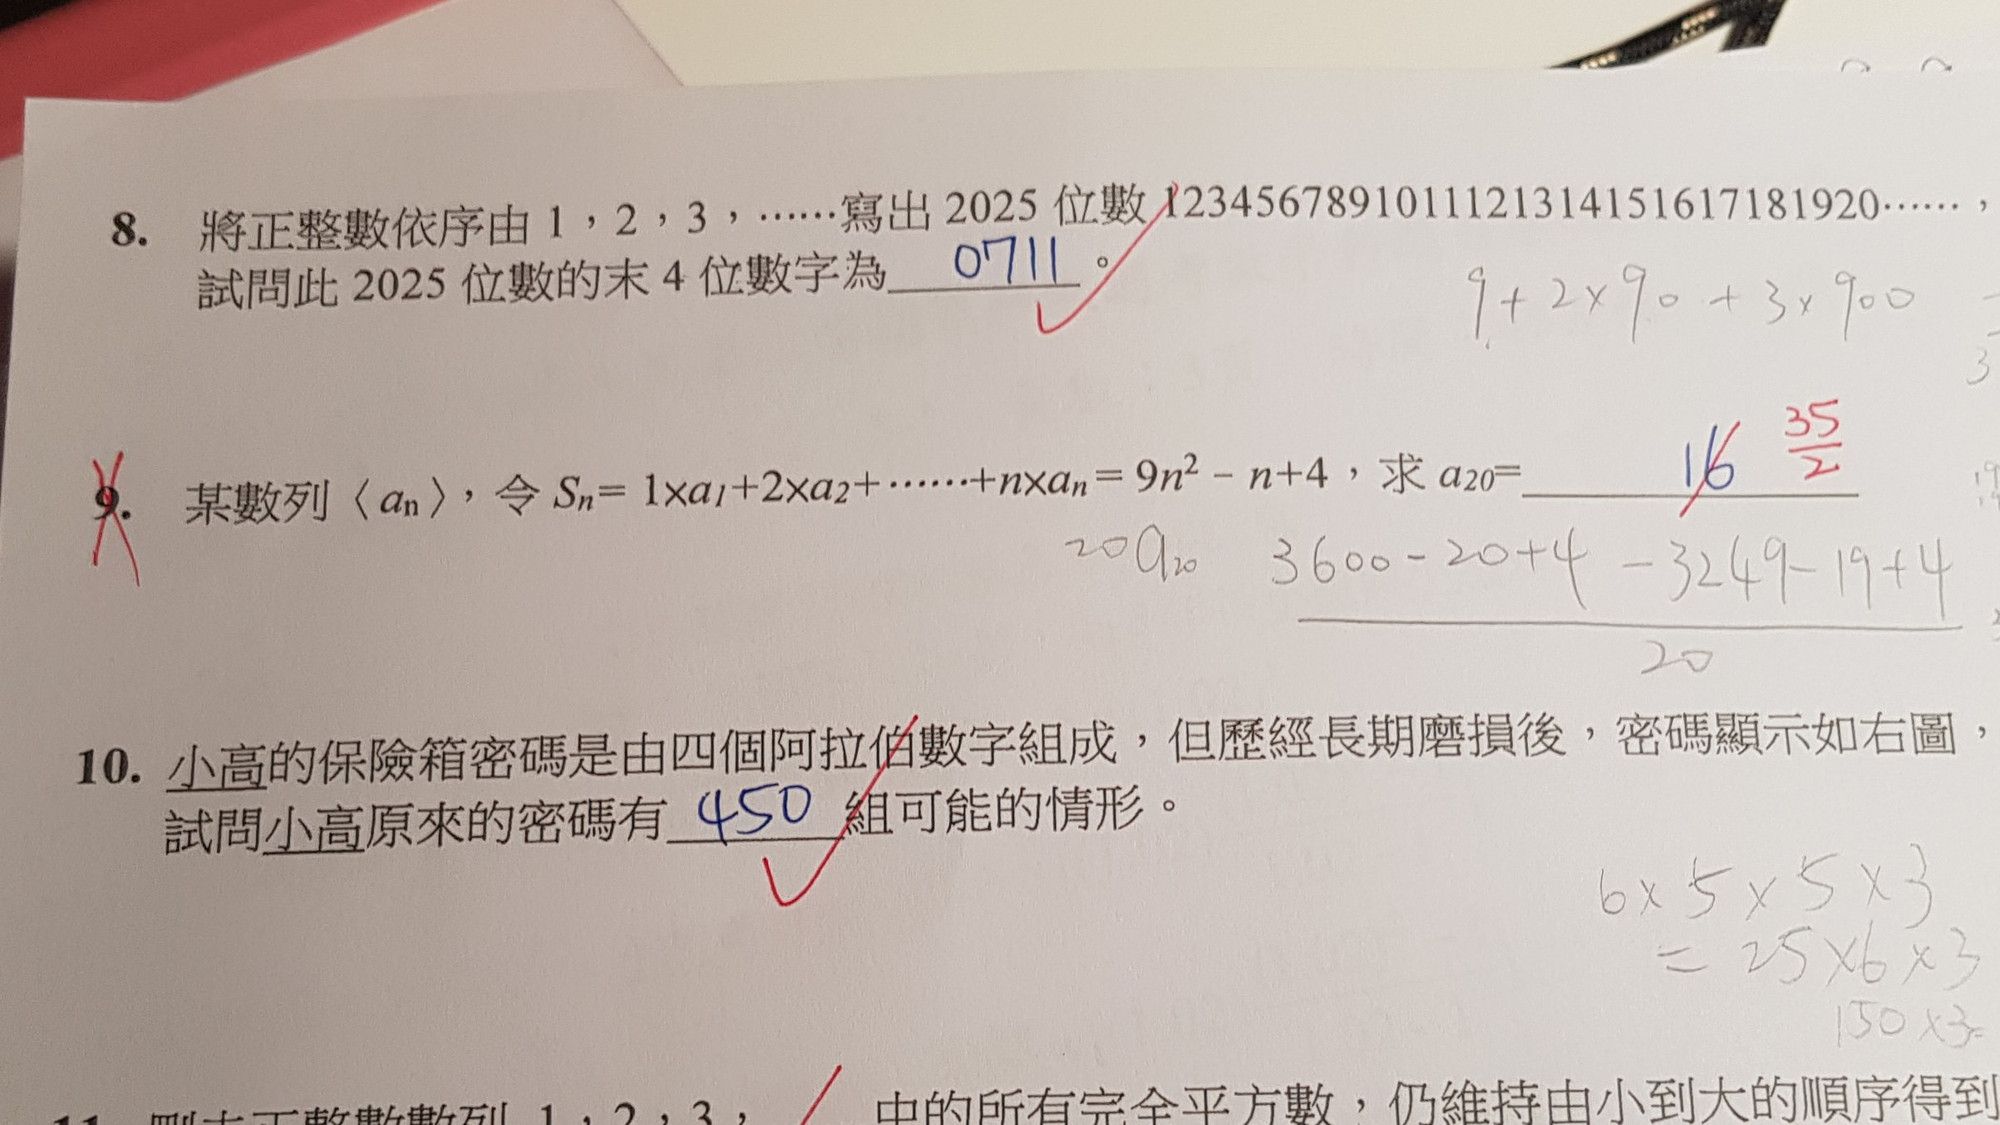 8. 將正整數依序由 1，2，3，……寫出 2025 位數 1234567891011121314151617181920……，
試問此 2025 位數的末 4 位數字為 0711 。
9+2×90+3×900
3
9. 某數列〈an〉，令 Sn= 1×a1+2×a2+……+n×an = 9n² – n+4，求 a20= 16 35/2
20a20 3600-20+4-3249-19+4
20
10. 小高的保險箱密碼是由四個阿拉伯數字組成，但歷經長期磨損後，密碼顯示如右圖，
試問小高原來的密碼有 450 組可能的情形。
6×5×5×3
=25×6×3
150×3=
中的所有完全平方數，仍維持由小到大的順序得到